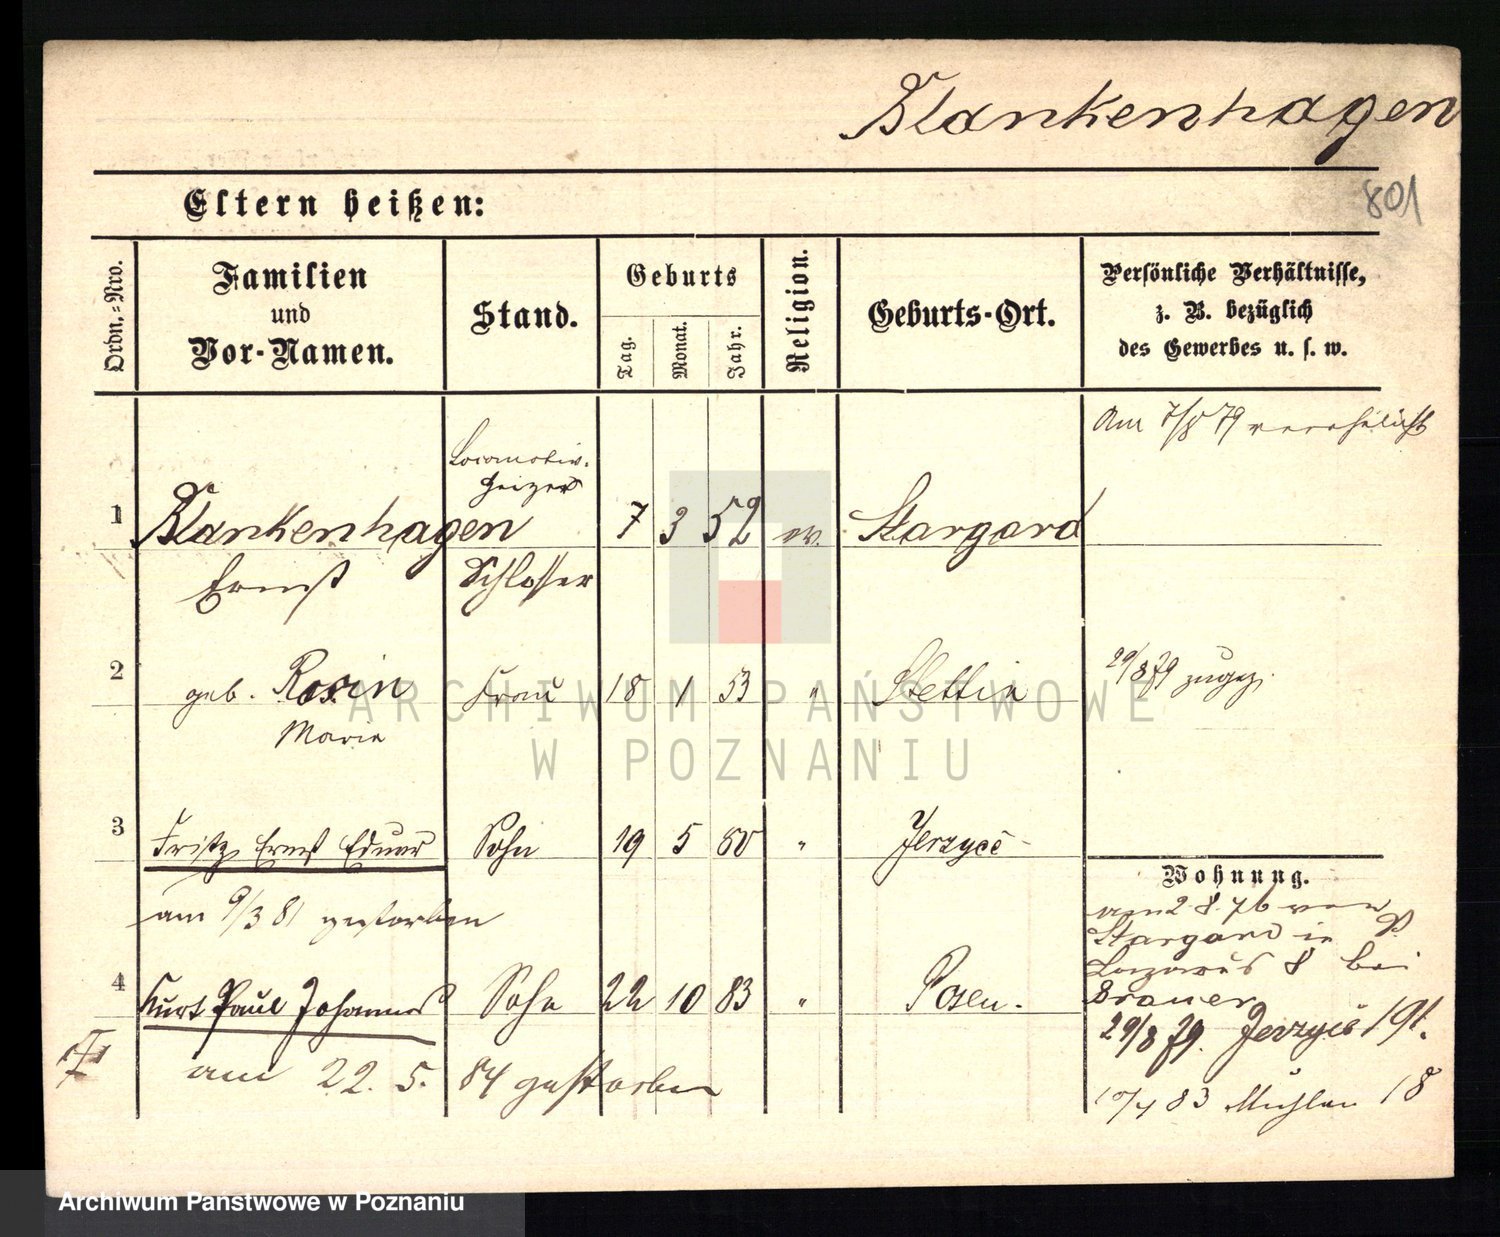 Blankenhagen
801
Eltern heißen:
Ordn.-Nro.
Familien
und
Vor-Namen.
Stand.
Geburts
Tag.
Monat.
Jahr.
Religion.
Geburts-Ort.
Persönliche Verhältnisse,
z. B. bezüglich
des Gewerbes u. s. w.
Am 7/8 79 verehelicht
Locomotiv-
Heizer
1 Blankenhagen 7 3 52 ev. Stargard
Ernst Schlosser
2 geb. Rosin Frau 18 1 53 " Stettin 29/8 79 zugez.
Marie
3 Fritz Ernst Eduar Sohn 19 5 80 " Jerzyce
Wohnung.
am 9/3 81 gestorben
am 2 8. 76 von
Stargard in P.
Lazarus 8 bei
Brauer
4 Kurt Paul Johannes Sohn 22 10 83 " Posen.
29/8 79. Jerzyce 191.
am 22. 5. 84 gestorben
10/4 83 Mühlen 18
ARCHIWUM PAŃSTWOWE
W POZNANIU
Archiwum Państwowe w Poznaniu